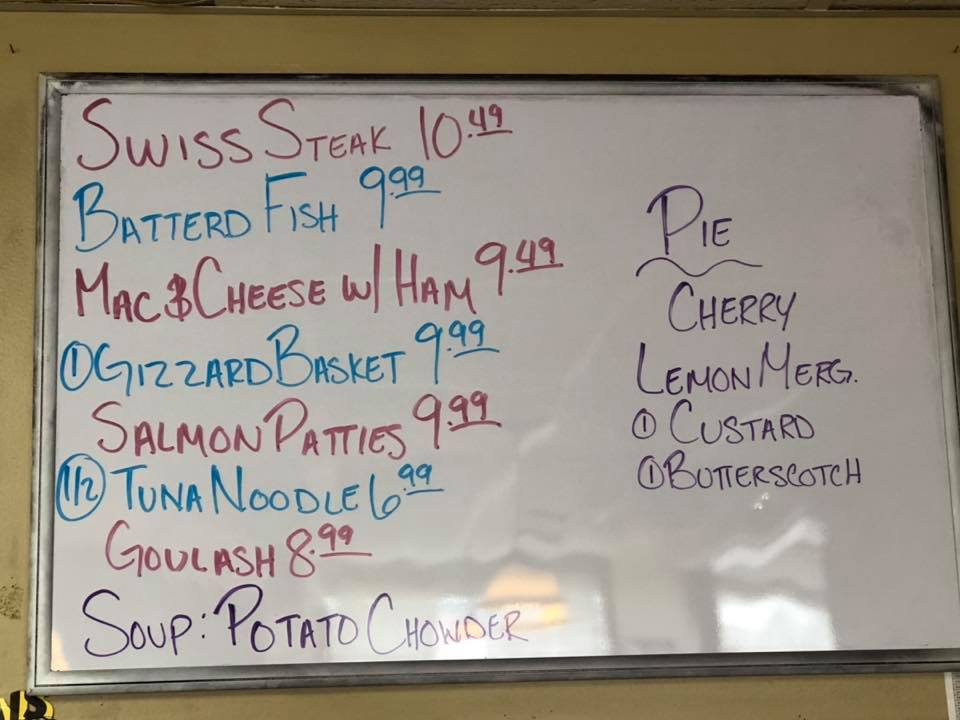 Swiss Steak 10.49
Batterd Fish 9.99
Mac & Cheese w/ Ham 9.49
① Gizzard Basket 9.99
Salmon Patties 9.99
1/2 Tuna Noodle 6.99
Goulash 8.99
Soup: Potato Chowder
Pie
Cherry
Lemon Merg.
① Custard
① Butterscotch